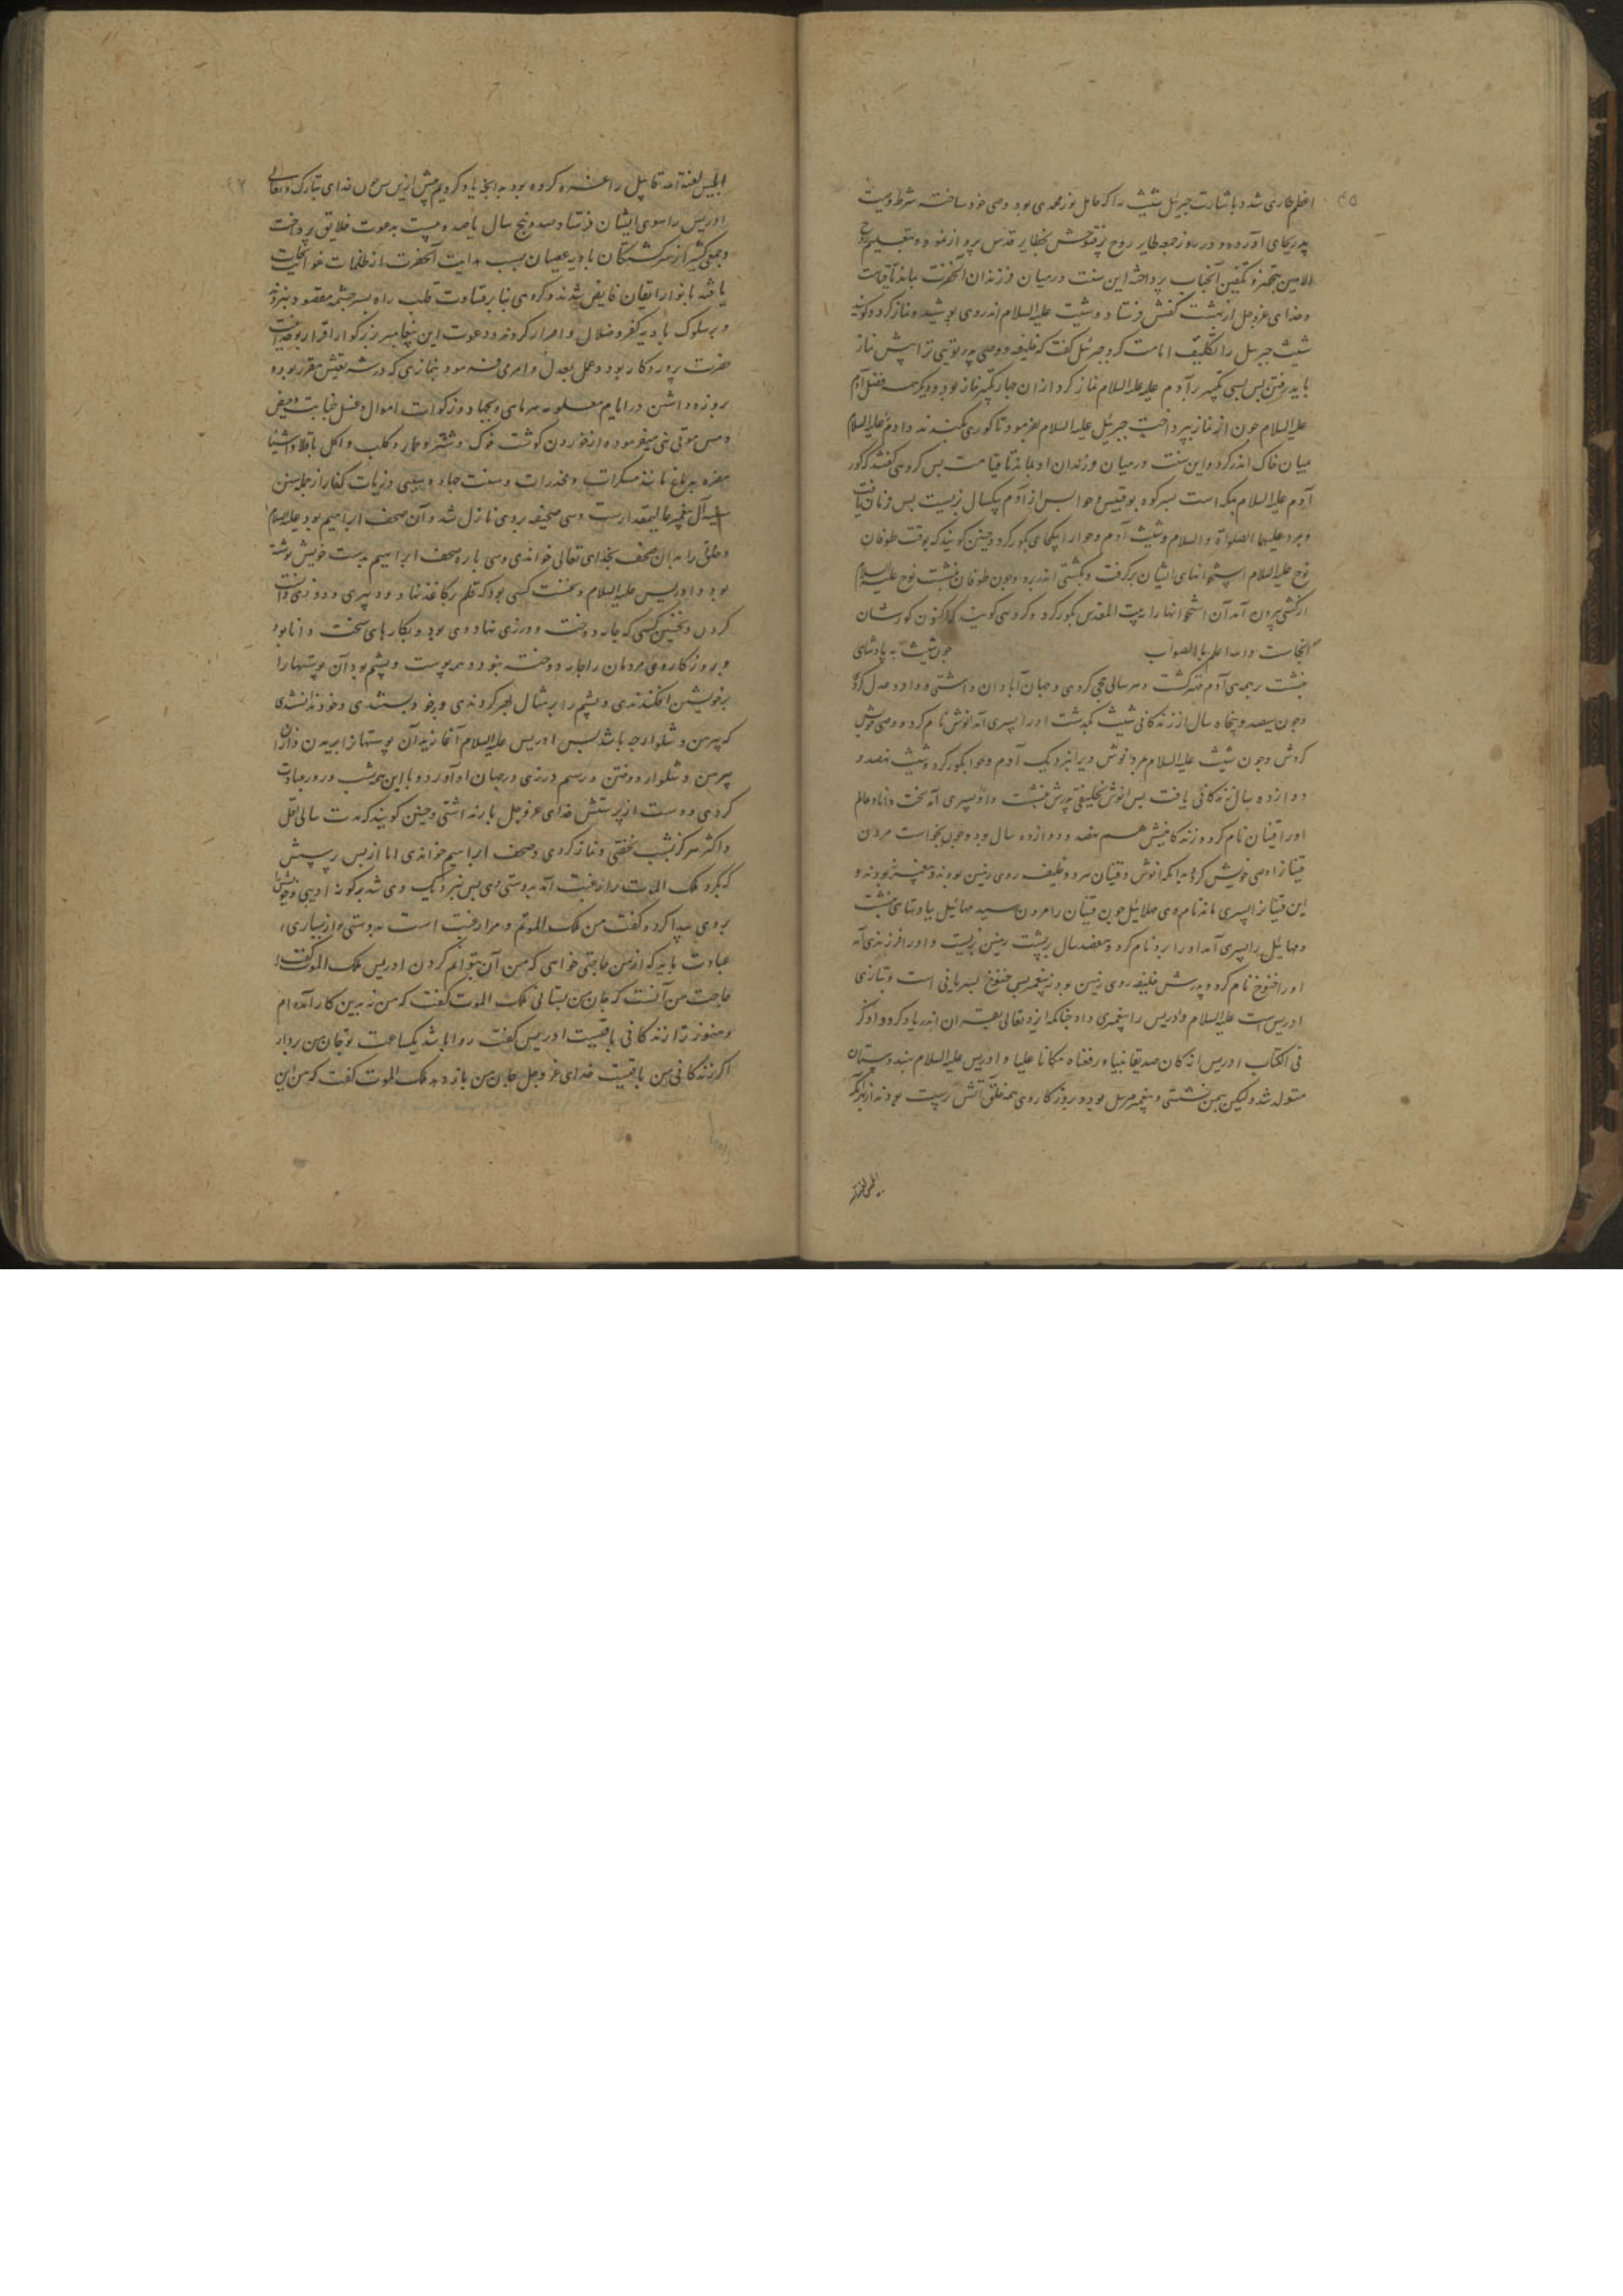 ۴۵
اعظم طاری شد و باشارت جبرئیل شیث را که حامل نور محمدی بود وصی خود ساخته شرط وصیت
بجای آورده و در روز جمعه طایر روح بخطایر قدس پرواز نمود و بتعلیم روح
الامین بتجهیز و تکفین آنجناب پرداخته این سنت در میان فرزندان آنحضرت بماند تا قیامت
و خدای عزوجل از بهشت کفنش فرستاد و شیث علیه السلام اندروی پوشید و نماز کرد و کویند
شیث جبرئیل را تکلیف امامت کرد جبرئیل کفت که خلیفه و وصی پدر توئی ترا پیش نماز
باید رفتن پس سی تکبیر بر آدم علیه السلام نماز کرد از ان چهار تکبیر نماز بود و دیکر همه فضل آدم
علیه السلام چون از نماز بپرداخت جبرئیل علیه السلام بفرمود تا کوری بکندند و آدم علیه السلام
میان خاک اندر کرد و این سنت در میان فرزندان او بماند تا قیامت پس کروهی کفتند که کور
آدم علیه السلام بمکه است بسر کوه بوقبیس و حوا پس از آدم یکسال بزیست پس فرمان یافت
و بمرد علیهما الصلوة والسلام و شیث آدم و حوا را یکجای بکور کرد و چنین کویند که بوقت طوفان
نوح علیه السلام استخوانهای ایشان برکرفت و بکشتی اندر برد و چون طوفان بنشست نوح علیه السلام
از کشتی بیرون آمد آن استخوانها را ببیت المقدس بکور کرد و کروهی کویند که اکنون کورشان
آنجاست والله اعلم بالصواب چون شیث به پادشاهی
بنشست بر جمله آدم مهتر کشت و هر سالی حج کردی و جهان آبادان داشتی و داد و عدل کردی
و چون سیصد و پنجاه سال از زندکانی شیث بگذشت او را پسری آمد انوش نام کرد و وصی خویش
کردش و چون شیث علیه السلام بمرد انوش ویرا نزدیک آدم و حوا بکور کرد و شیث نهصد و
دوازده سال زندکانی یافت پس انوش بخلیفتی پدرش بنشست و او را پسری آمد سخت دانا و عالم
او را قینان نام کرد و زندکانیش هم نهصد و دوازده سال بود و چون بخواست مردن
قینان را وصی خویش کرد بدانکه انوش و قینان هر دو خلیفه روی زمین بودند و پیغمبر نبودند و
این قینان را پسری ماند نام وی مهلائیل چون قینان را مردن رسید مهائیل بپادشاهی بنشست
و مهائیل را پسری آمد او را برد نام کرد و هفصد سال برپشت زمین بزیست و او را فرزندی آمد
او را اخنوخ نام کرد و پدرش خلیفه روی زمین بود نه پیغمبر پس خنوخ بسریانی است و بتازی
ادریس است علیه السلام و ادریس را پیغمبری داد چنانکه ایزد تعالی بقران اندر یاد کرد و اذکر
فی الکتاب ادریس انه کان صدیقا نبیا و رفعناه مکانا علیا و ادریس علیه السلام بهندوستان
متولد شد ولیکن بیمن نشستی و پیغمبر مرسل بود و بروزکار وی همه خلق آتش پرست بودند از بهر آنکه
ابلیس لعنة الله قابیل را غره کرده بود بدانچه یاد کردیم پیش ازین پس چون خدای تبارک و تعالی
ادریس را سوی ایشان فرستاد و صد و پنج سال یا صد و بیست بدعوت خلایق پرداخت
و جمعی کثیر از سرکشتکان بادیه عصیان بسبب هدایت آنحضرت از ظلمات غوایت نجات
یافته بانوار ایقان فایض شدند و کروهی بنابر قساوت قلب راه بسرچشمه مقصود نبردند
و بر سلوک بادیه کفر و ضلال و اصرار کردند و دعوت این پیغامبر بزرکوار اقرار بوحدانیت
حضرت پروردکار بود و عمل بعدل و امر می فرمود بنمازی که در شریعتش مقرر بود و
روزه داشتن در ایام معلومه هر ماهی و بجهاد و زکوات اموال و غسل جنابت و حیض
و مس موتی نهی میفرمود و از خوردن کوشت خوک و شتر و حمار و کلب و اکل باقلا و اشیاء
مضره بدماغ مانند مسکرات و مخدرات و سنت جهاد و سبی ذریات کفار از جمله سنن
سنیه آن پیغمبر عالیمقدار است و سی صحیفه بروی نازل شد و آن صحف ابراهیم بود علیه السلام
و خلق را بدان صحف بخدای تعالی خواندی و سی باره صحف ابراهیم بدست خویش نوشته
بود و ادریس علیه السلام و نخست کسی بود که قلم بر کاغذ نهاد و دبیری و
کردن و نخستین کسی که جامه دوخت و درزی نهاد وی بود و بکارهای سخت دانا بود
و بروزکار وی مردمان را جامه دوخته نبود و همه پوست و پشم بود آن پوستها را
برخویشتن افکندندی و پشم را بر مثال کردندی و برخود بستندی و خود ندانستندی
که پیرهن و شلوار چه باشد پس ادریس علیه السلام آغازید آن پوستها را بریدن و از آن
پیرهن و شلوار دوختن و رسم درزی در جهان او آورد و با این همه شب و روز عبادت
کردی و دست از پرستش خدای عزوجل باز نداشتی و چنین کویند که مدت سالی اقل
و اکثر هرکز بشب نخفتی و نماز کردی و صحف ابراهیم خواندی اما از بس پرستش
که بکرد ملک الموت را رغبت آمد بدوستی وی پس نزدیک وی شد برکونه ادمی و خویشتن
بروی پیدا کرد و کفت من ملک الموتم و مرا رغبت است بدوستی تو از بسیاری
عبادت باید که از من حاجتی خواهی که من آن بتوانم کردن ادریس ملک الموت کفت
حاجت من آنست که جان من بستانی ملک الموت کفت که من نه بدین کار آمده ام
و هنوز ترا زندکانی باقیست ادریس کفت روا باشد یکساعت تو جان من بردار
اکر زندکانی من باقیست خدای عزوجل جان من باز دهد ملک الموت کفت که من این